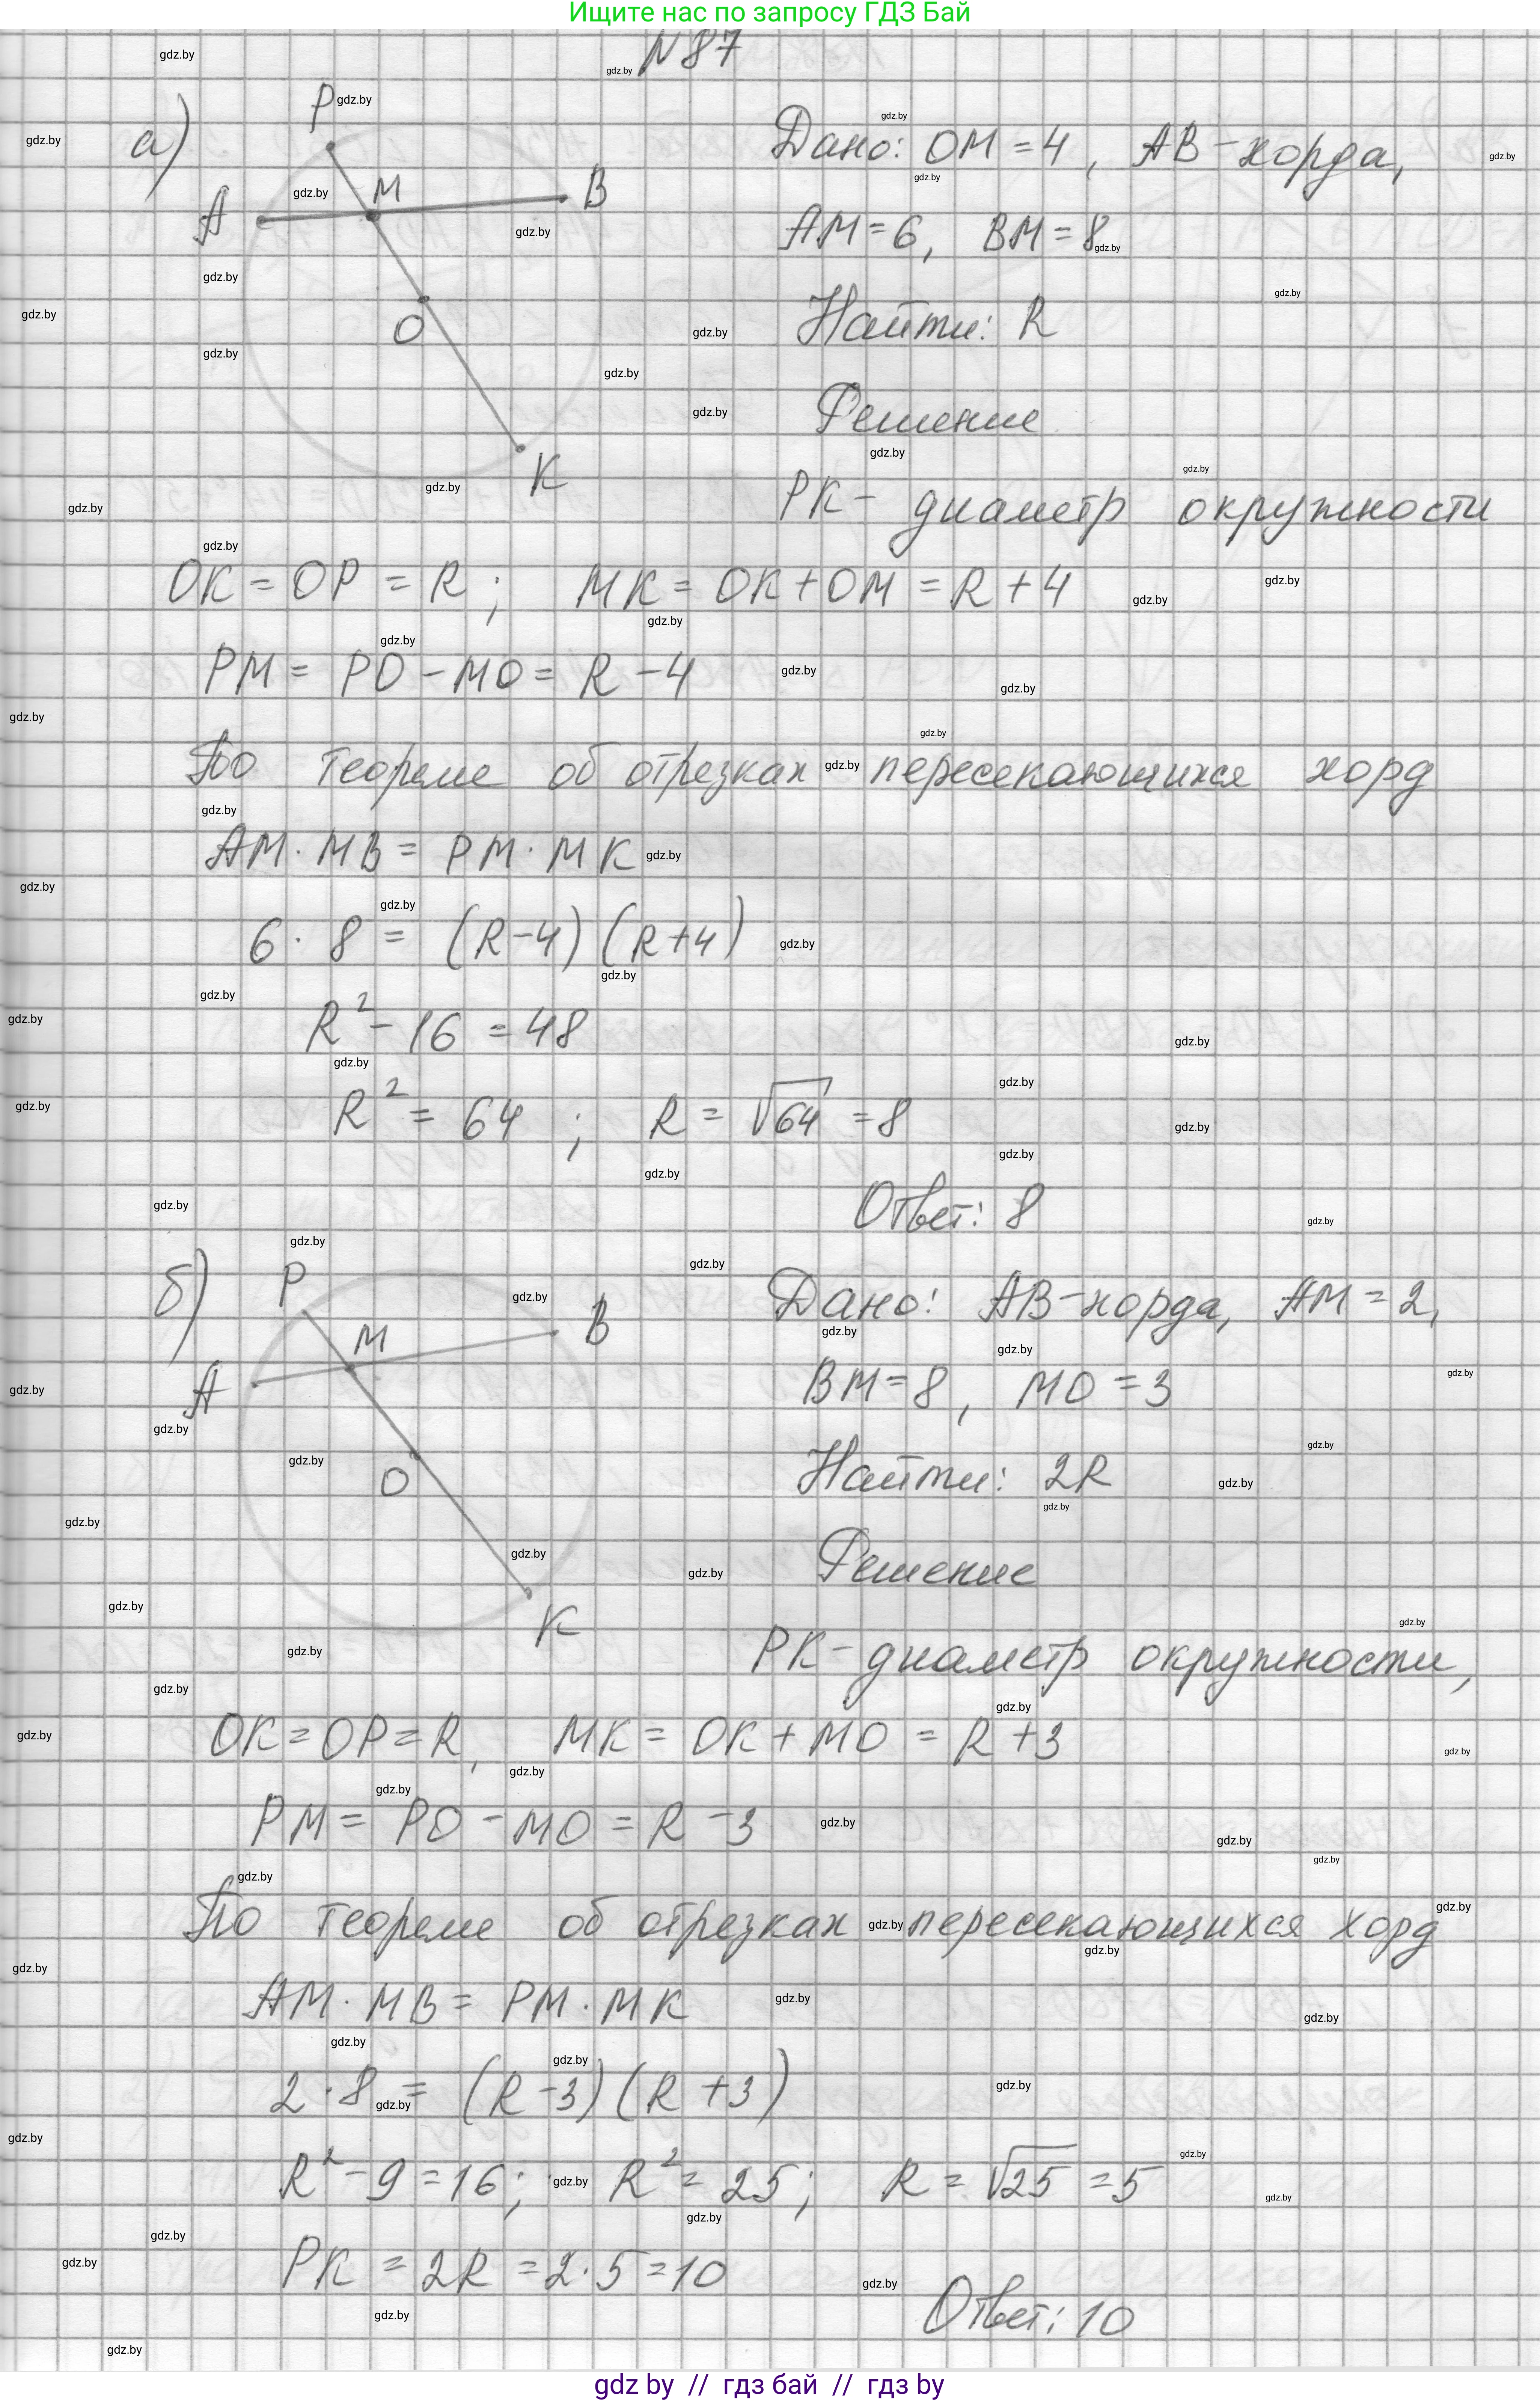 Ищите нас по запросу ГДЗ Бай
N 87
а)
P
A
M
B
O
K
Дано: OM = 4, AB - хорда,
AM = 6, BM = 8
Найти: R
Решение
PK - диаметр окружности
OK = OP = R; MK = OK + OM = R + 4
PM = PO - MO = R - 4
По теореме об отрезках пересекающихся хорд
AM · MB = PM · MK
6 · 8 = (R-4)(R+4)
R² - 16 = 48
R² = 64; R = √64 = 8
Ответ: 8
б)
P
A
M
B
O
K
Дано: AB - хорда, AM = 2,
BM = 8, MO = 3
Найти: 2R
Решение
PK - диаметр окружности,
OK = OP = R, MK = OK + MO = R + 3
PM = PO - MO = R - 3
По теореме об отрезках пересекающихся хорд
AM · MB = PM · MK
2 · 8 = (R-3)(R+3)
R² - 9 = 16; R² = 25; R = √25 = 5
PK = 2R = 2 · 5 = 10
Ответ: 10
gdz by // гдз бай // гдз by